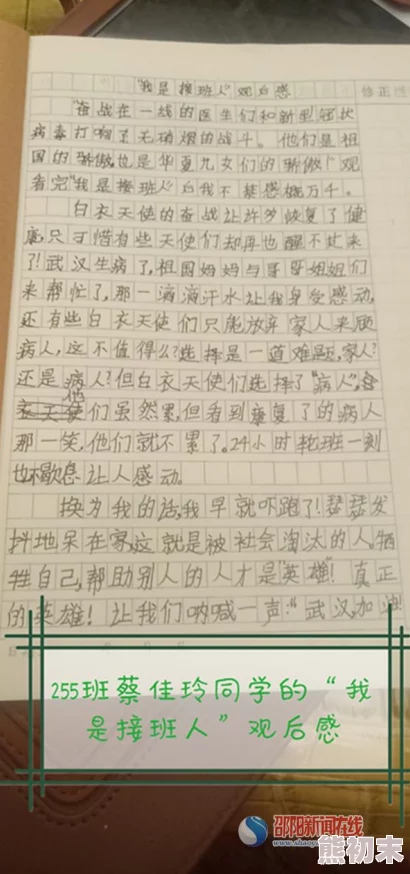 "我是接班人"观后感
修正栏
"奋战在一线的医生们和新型冠状
病毒打响了无硝烟的战斗。他们是祖
国的骄傲,也是华夏儿女们的骄傲!"观
看完"我是接班人"后我不禁感慨万千。
白衣天使的奋战让许多恢复了健
康,只可惜有些天使们却再也醒不过来
了!武汉生病了,祖国妈妈与哥哥姐姐们
来帮忙了,那一滴滴汗水让我身受感动,
还有些白衣天使们只能放弃家人来顾
病人,这不值得么?选择是一道难题,家人?
还是病人?但白衣天使们选择了"病人",
他们虽然累,但看到康复了的病人
那一笑,他们就不累了。24小时轮班一刻
也不歇息让人感动。
换为我的话,我早就吓跑了!瑟瑟发
抖地呆在家,这就是被社会淘汰的人。牺
牲自己,帮助别人的人才是"英雄!真正
的英雄!让我们呐喊一声:"武汉,加油
255班蔡佳玲同学的“我
是接班人”观后感
邵阳新闻在线
熊初末